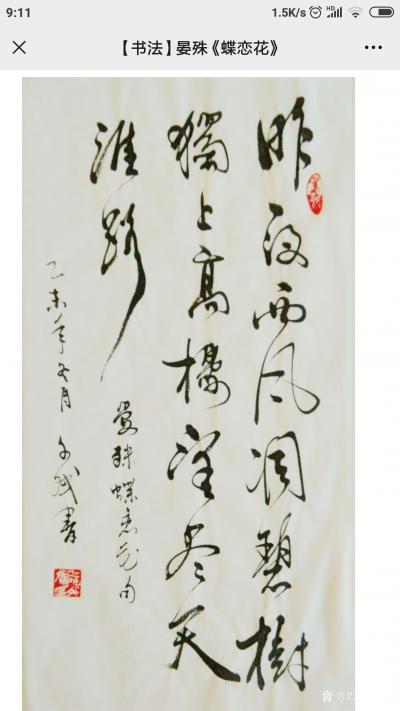 9:11
1.5K/s
HD
【书法】晏殊《蝶恋花》
昨夜西风凋碧樹
獨上高樓望尽天
涯路
晏殊蝶恋花句
乙未年冬月
書